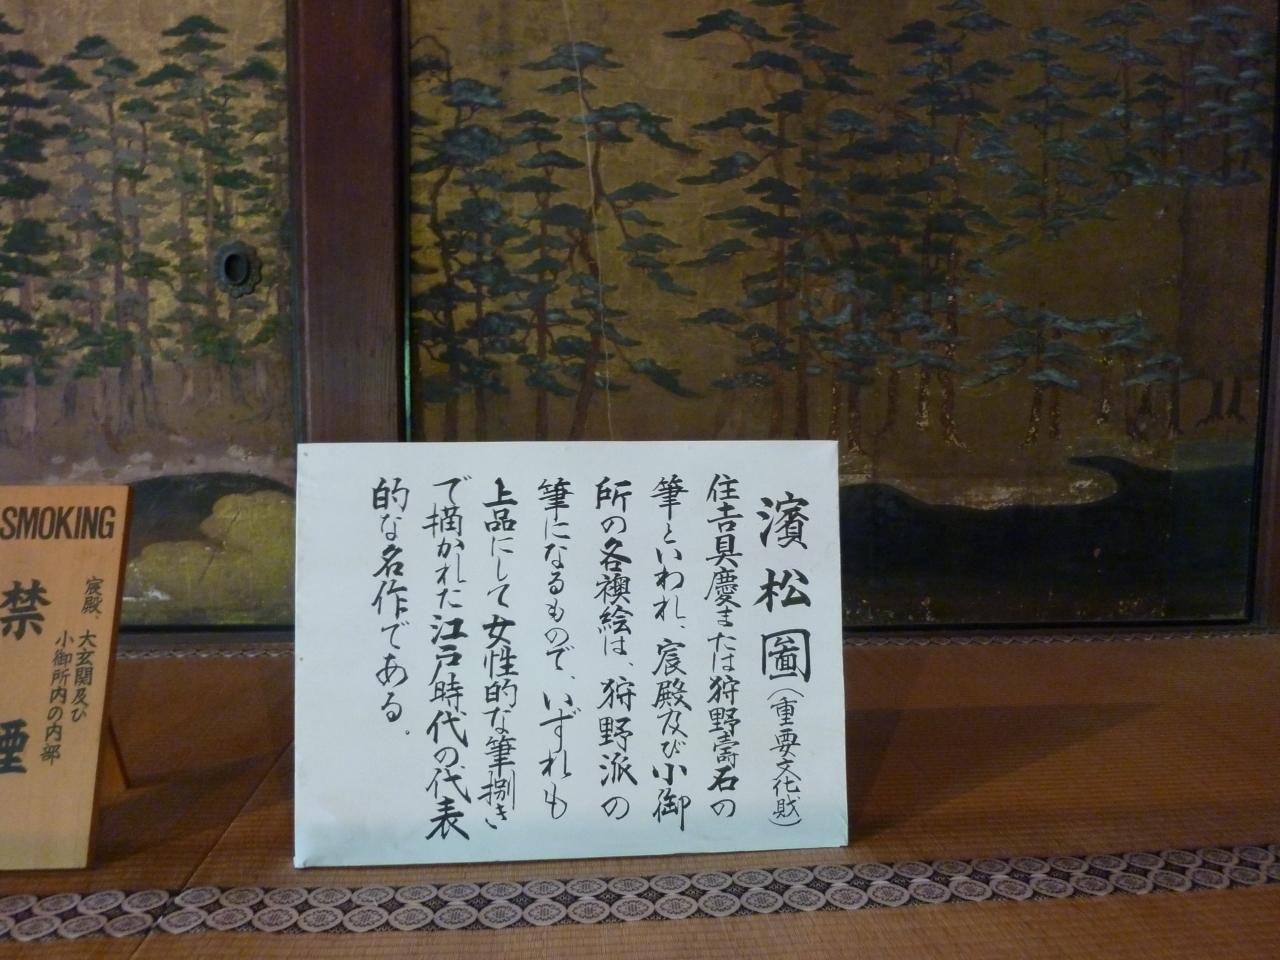 濱松圖（重要文化財）
住吉具慶または狩野壽石の
筆といわれ、宸殿及び小御
所の各襖絵は、狩野派の
筆になるもので、いずれも
上品にして女性的な筆捌き
で描かれた江戸時代の代表
的な名作である。
SMOKING
宸殿、大玄関及び
小御所内の内部
禁煙